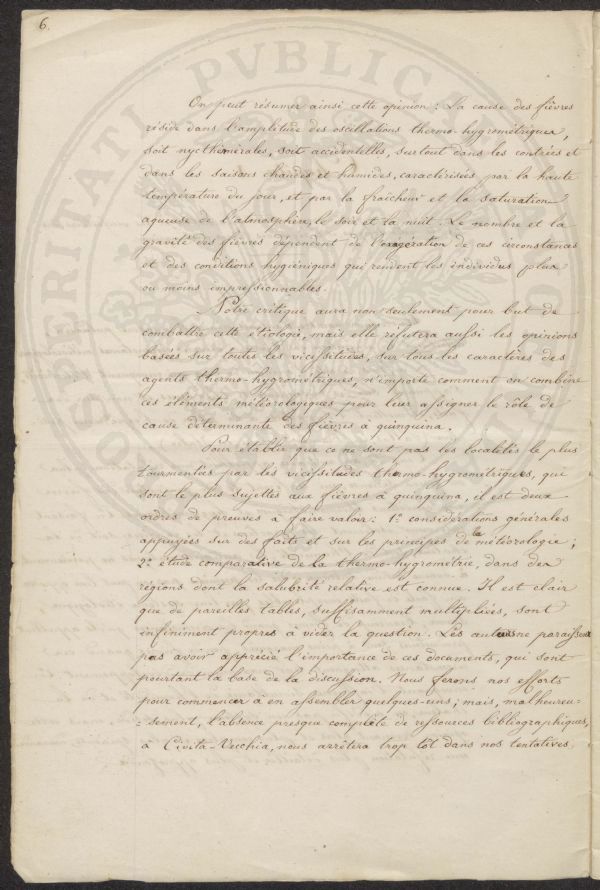 6.
On peut résumer ainsi cette opinion : La cause des fièvres
réside dans l'amplitude des oscillations thermo-hygrométriques,
soit nycthémérales, soit accidentelles, surtout dans les contrées et
dans les saisons chaudes et humides, caractérisées par la haute
température du jour, et par la fraîcheur et la saturation
aqueuse de l'atmosphère, le soir et la nuit. Le nombre et la
gravité des fièvres dépendent de l'exagération de ces circonstances
et des conditions hygiéniques qui rendent les individus plus
ou moins impressionnables.
Notre critique aura non seulement pour but de
combattre cette étiologie, mais elle réfutera aussi les opinions
basées sur toutes les vicissitudes, sur tous les caractères des
agents thermo-hygrométriques, n'importe comment on combine
ces éléments météorologiques pour leur assigner le rôle de
cause déterminante des fièvres à quinquina.
Pour établir que ce ne sont pas les localités le plus
tourmentées par les vicissitudes thermo-hygrométriques, qui
sont le plus sujettes aux fièvres à quinquina, il est deux
ordres de preuves à faire valoir : 1º considérations générales
appuyées sur des faits et sur les principes de la météorologie ;
2º étude comparative de la thermo-hygrométrie, dans des
régions dont la salubrité relative est connue. Il est clair
que de pareilles tables, suffisamment multipliées, sont
infiniment propres à vider la question. Les auteurs ne paraissent
pas avoir apprécié l'importance de ces documents, qui sont
pourtant la base de la discussion. Nous ferons nos efforts
pour commencer à en assembler quelques-uns ; mais, malheureu-
-sement, l'absence presque complète de ressources bibliographiques,
à Civita-Vecchia, nous arrêtera trop tôt dans nos tentatives.